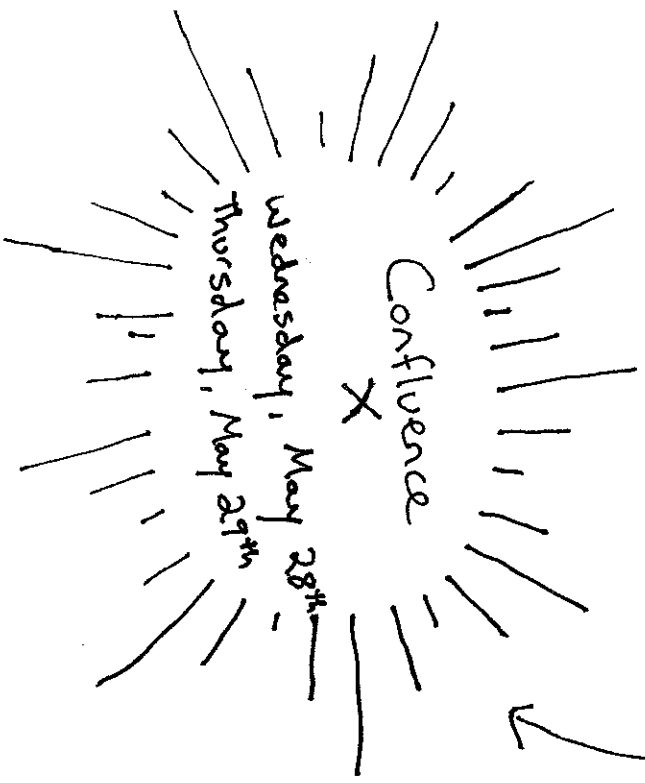 Confluence
X
Wednesday, May 28th
Thursday, May 29th